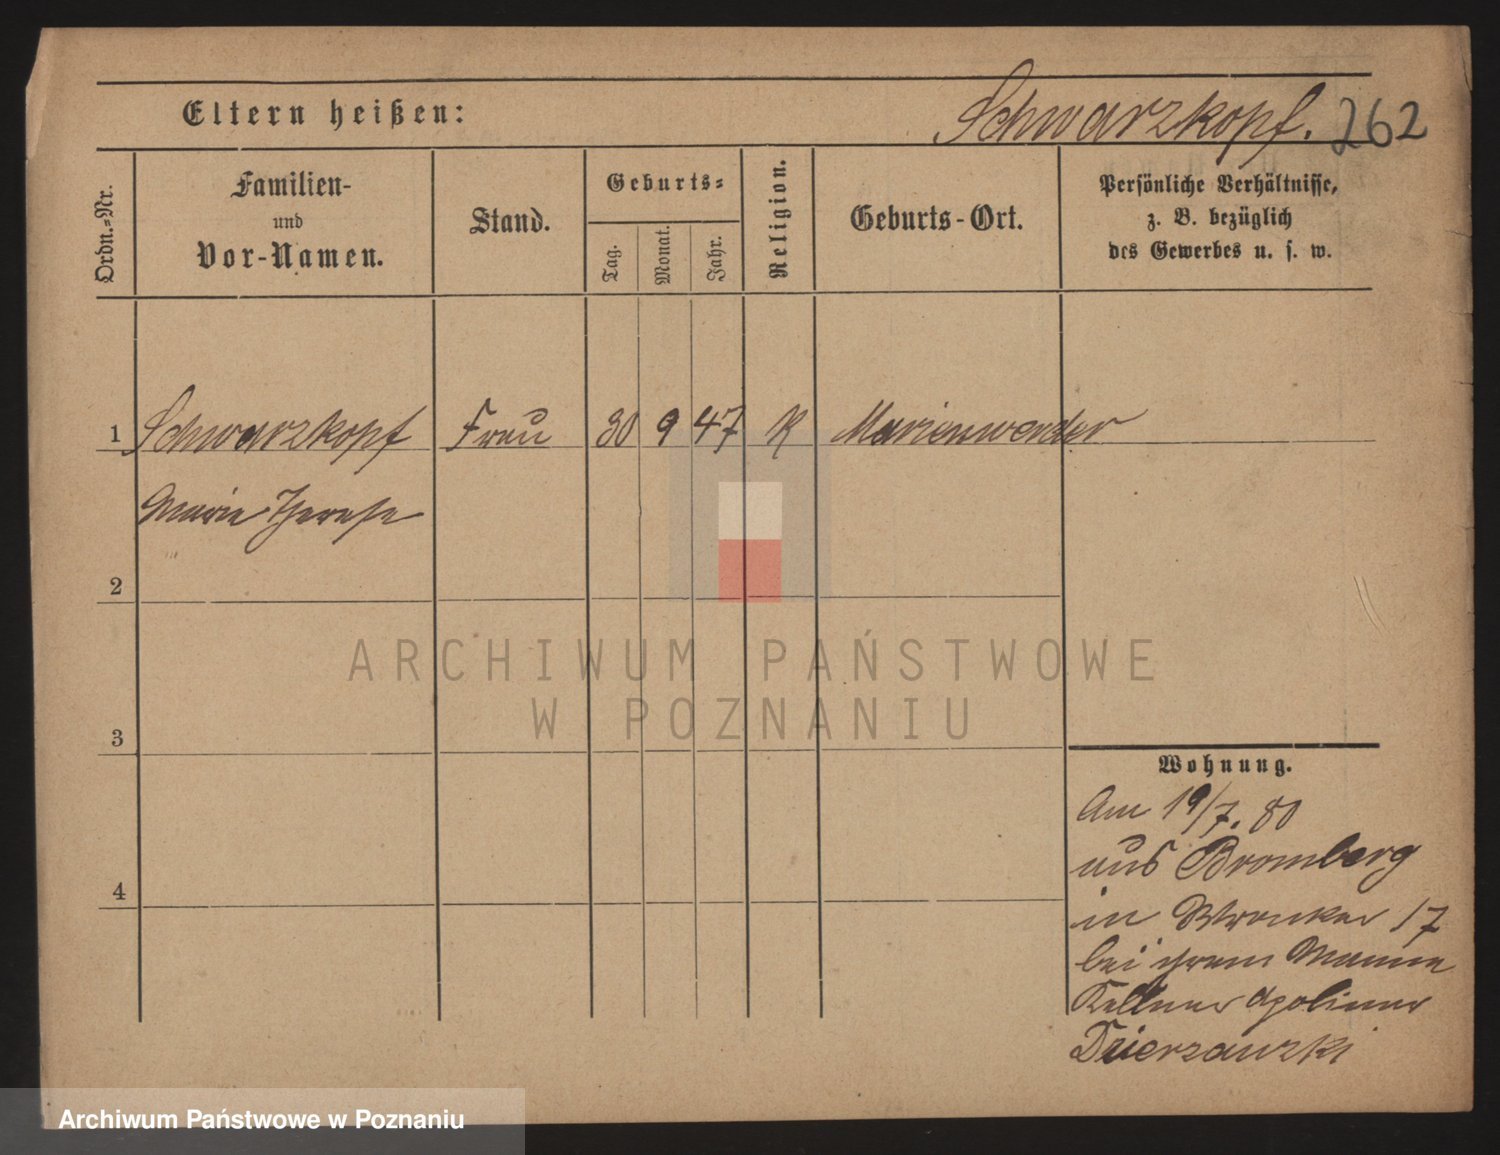 Eltern heißen:
Schwarzkopf. 262
Ordn.-Nr.
Familien-
und
Vor-Namen.
Stand.
Geburts-
Tag.
Monat.
Jahr.
Religion.
Geburts-Ort.
Persönliche Verhältnisse,
z. B. bezüglich
des Gewerbes u. s. w.
1 Schwarzkopf Frau 30 9 47 K Marienwerder
Marie Therese
2
3
4
Wohnung.
Am 19/7. 80
aus Bromberg
in Wronker 17
bei ihrem Manne
Kellner Apolinar
ARCHIWUM PAŃSTWOWE
W POZNANIU
Archiwum Państwowe w Poznaniu